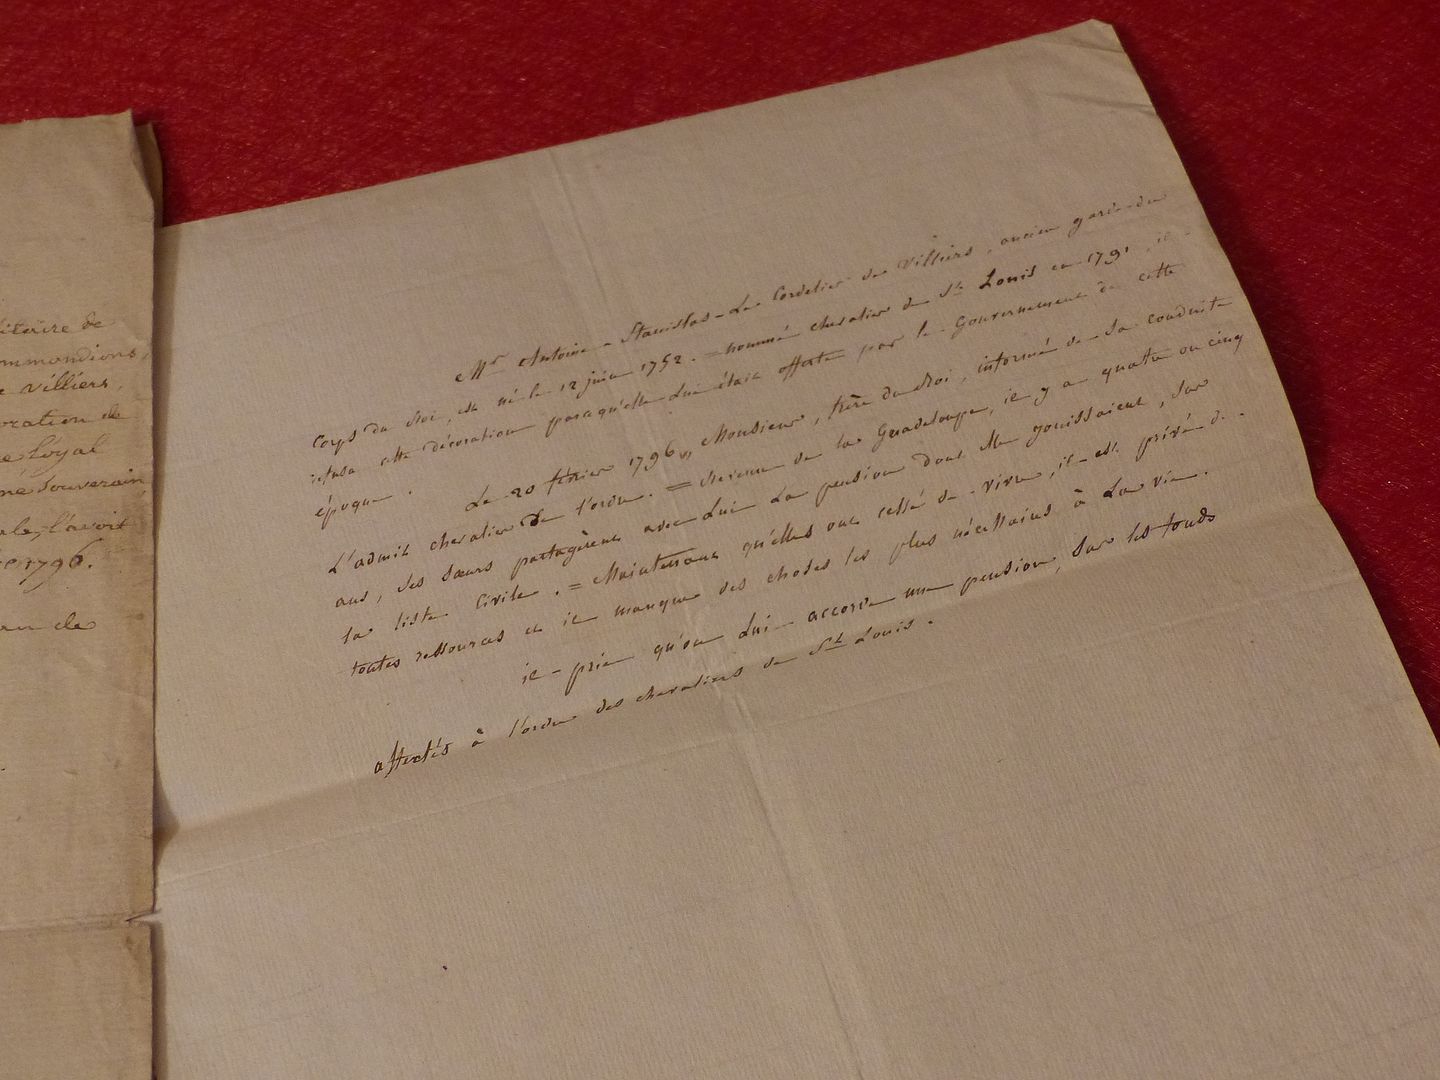 itaire de
ommandions,
e Villiers,
oration de
e loyal
me Souverain
ale, l'avoit
1796.
de
Mr Antoine-Stanislas-Le Cordelier de Villiers, ancien garde du
Corps du Roi, est né le 12 juin 1752. = nommé chevalier de St Louis en 1791, il
refusa cette décoration parcequ'elle lui était offerte par le Gouvernement de cette
époque.
Le 20 février 1796, Monsieur, frère du Roi, informé de sa conduite
L'admit chevalier de l'ordre. = Revenu de la Guadeloupe, il y a quatre ou cinq
ans, ses sœurs partagèrent avec lui la pension dont elles jouissaient, sur
la liste Civile. = Maintenant qu'elles ont cessé de vivre, il est privé de
toutes ressources et il manque des choses les plus nécessaires à la vie.
il prie qu'on lui accorde une pension, sur les fonds
affectés à l'ordre des chevaliers de St Louis.